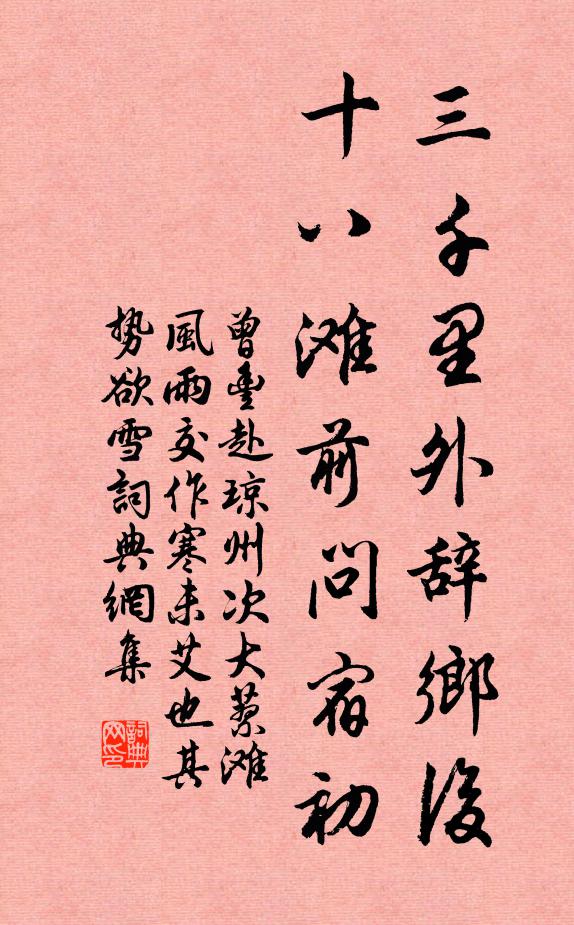 三千里外辞鄉後
十八滩前問宿初
曾豊赴琼州次大蓼滩
風雨交作寒未艾也其
势欲雪詞典網集
詞典
网印